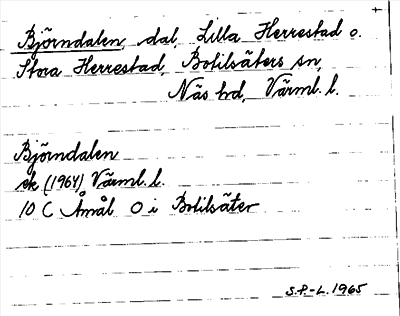 Björndalen, dal, Lilla Herrestad o.
Stora Herrestad, Botilsäters sn,
Näs hd, Värml. l.
Björndalen
ek (1964) Värml. l.
10 C Åmål O i Botilsäter
S.P.-L. 1965